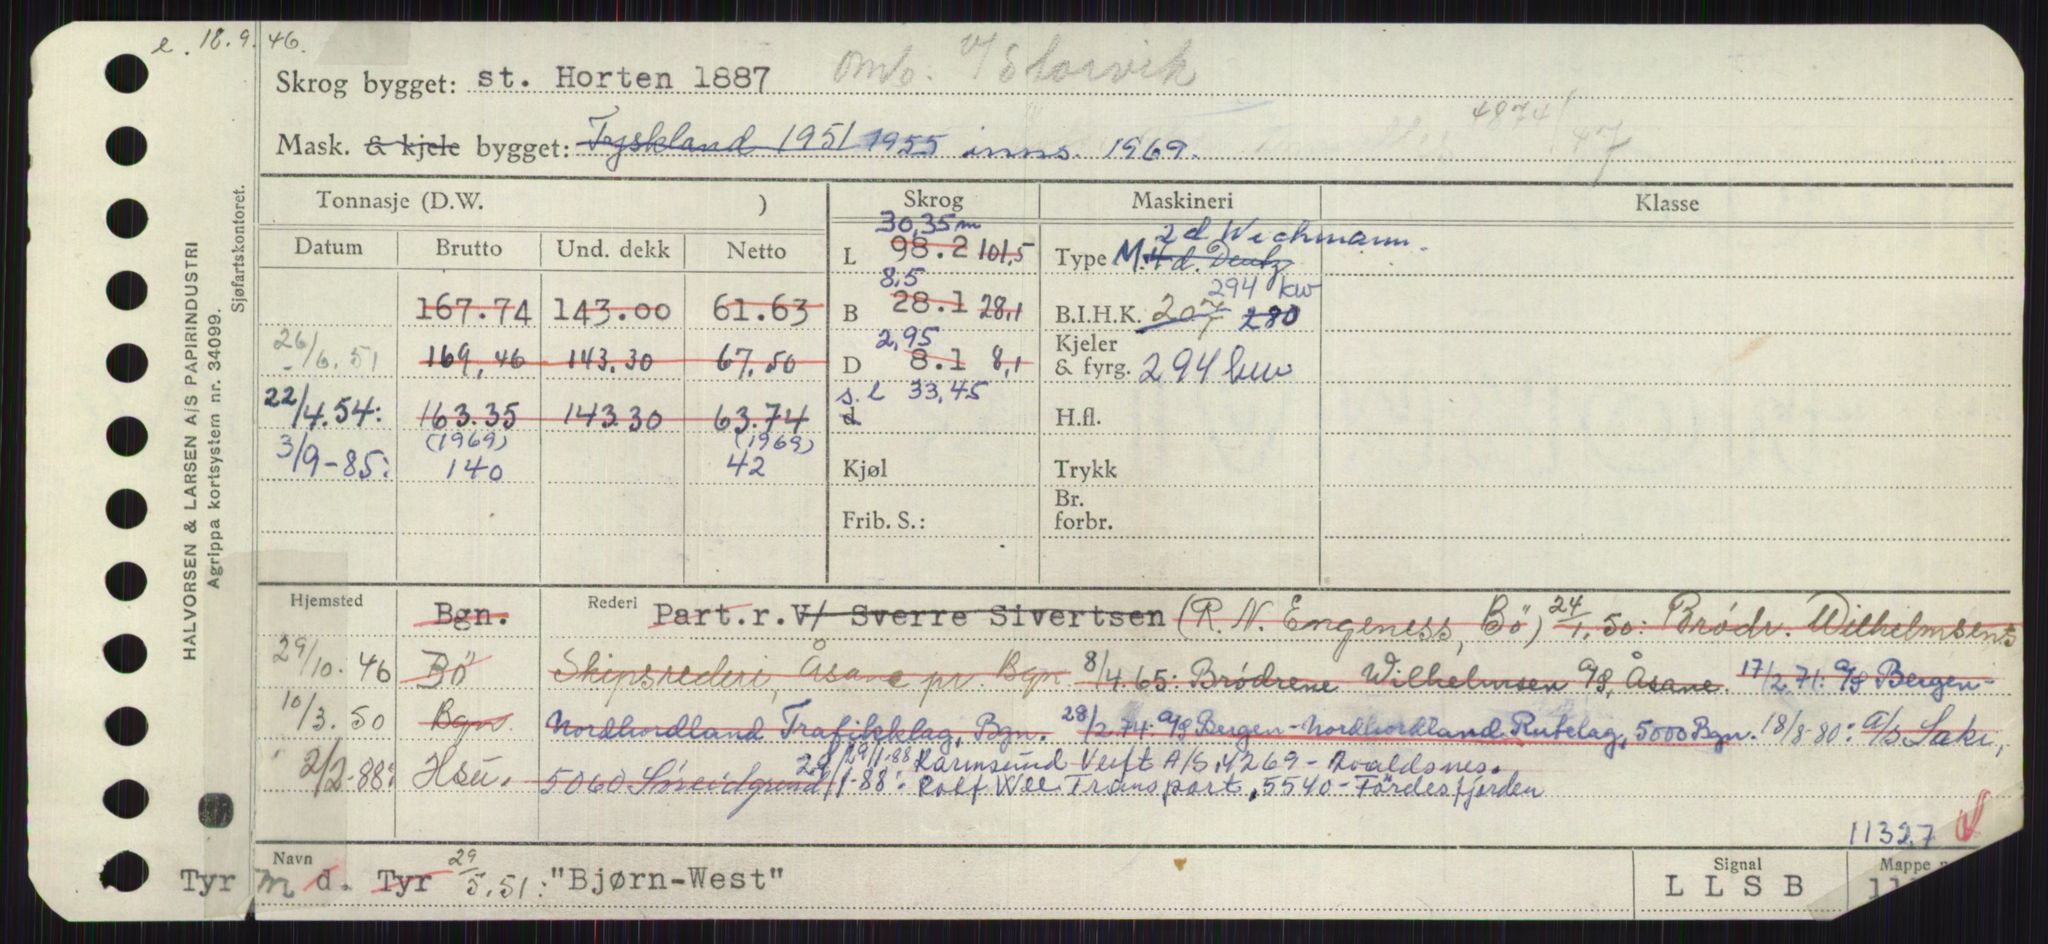 e. 18.9.46.
Skrog bygget: st. Horten 1887
Mask. & kjele bygget: Tyskland 1951 1955 inns. 1969.
48741
47
HALVORSEN & LARSEN A/S PAPIRINDUSTRI
Sjøfartskontoret.
Agrippa kortsystem nr. 34099.
Tonnasje (D.W. ) Skrog Maskineri Klasse
Datum Brutto Und. dekk Netto
30,35 m
L 98.2 101,5
8,5
B 28.1 28,1
2,95
D 8.1 8,1
s.l 33,45
d
Kjøl
Frib. S.:
2 d Wichmann.
Type M. 4 d. Deutz
294 kw
B.I.H.K. 207 280
Kjeler
& fyrg. 294 kw
H.fl.
Trykk
Br.
forbr.
167.74 143.00 61.63
26/6.51 169,46 143.30 67.50
22/4.54: 163.35 143.30 63.74
(1969) (1969)
3/9-85: 140 42
Hjemsted Bgn. Rederi Part.r.V/ Sverre Sivertsen (R. N. Engeness, Bö) 24/1.50: Brödr. Wilhelmsens
29/10.46 Bö Skipsrederi, Åsane pr. Bgn 8/4.65: Brödrene Wilhelmsen A/S, Åsane. 17/2.71: A/S Bergen-
10/3.50 Bgn. Nordhordland Trafikklag, Bgn. 28/2.74: A/S Bergen-Nordhordland Rutelag, 5000 Bgn. 18/8-80: A/S Laki,
29/1-88 Karmsund Verft A/S, 4269-Avaldsnes.
2/2-88: Hsu. 5060 Söreidgrend 29/1-88: Rolf Wee Transport, 5540-Fördesfjorden
11327
Navn Signal Mappe
Tyr M d. Tyr 29/5.51: "Bjørn-West" L L S B